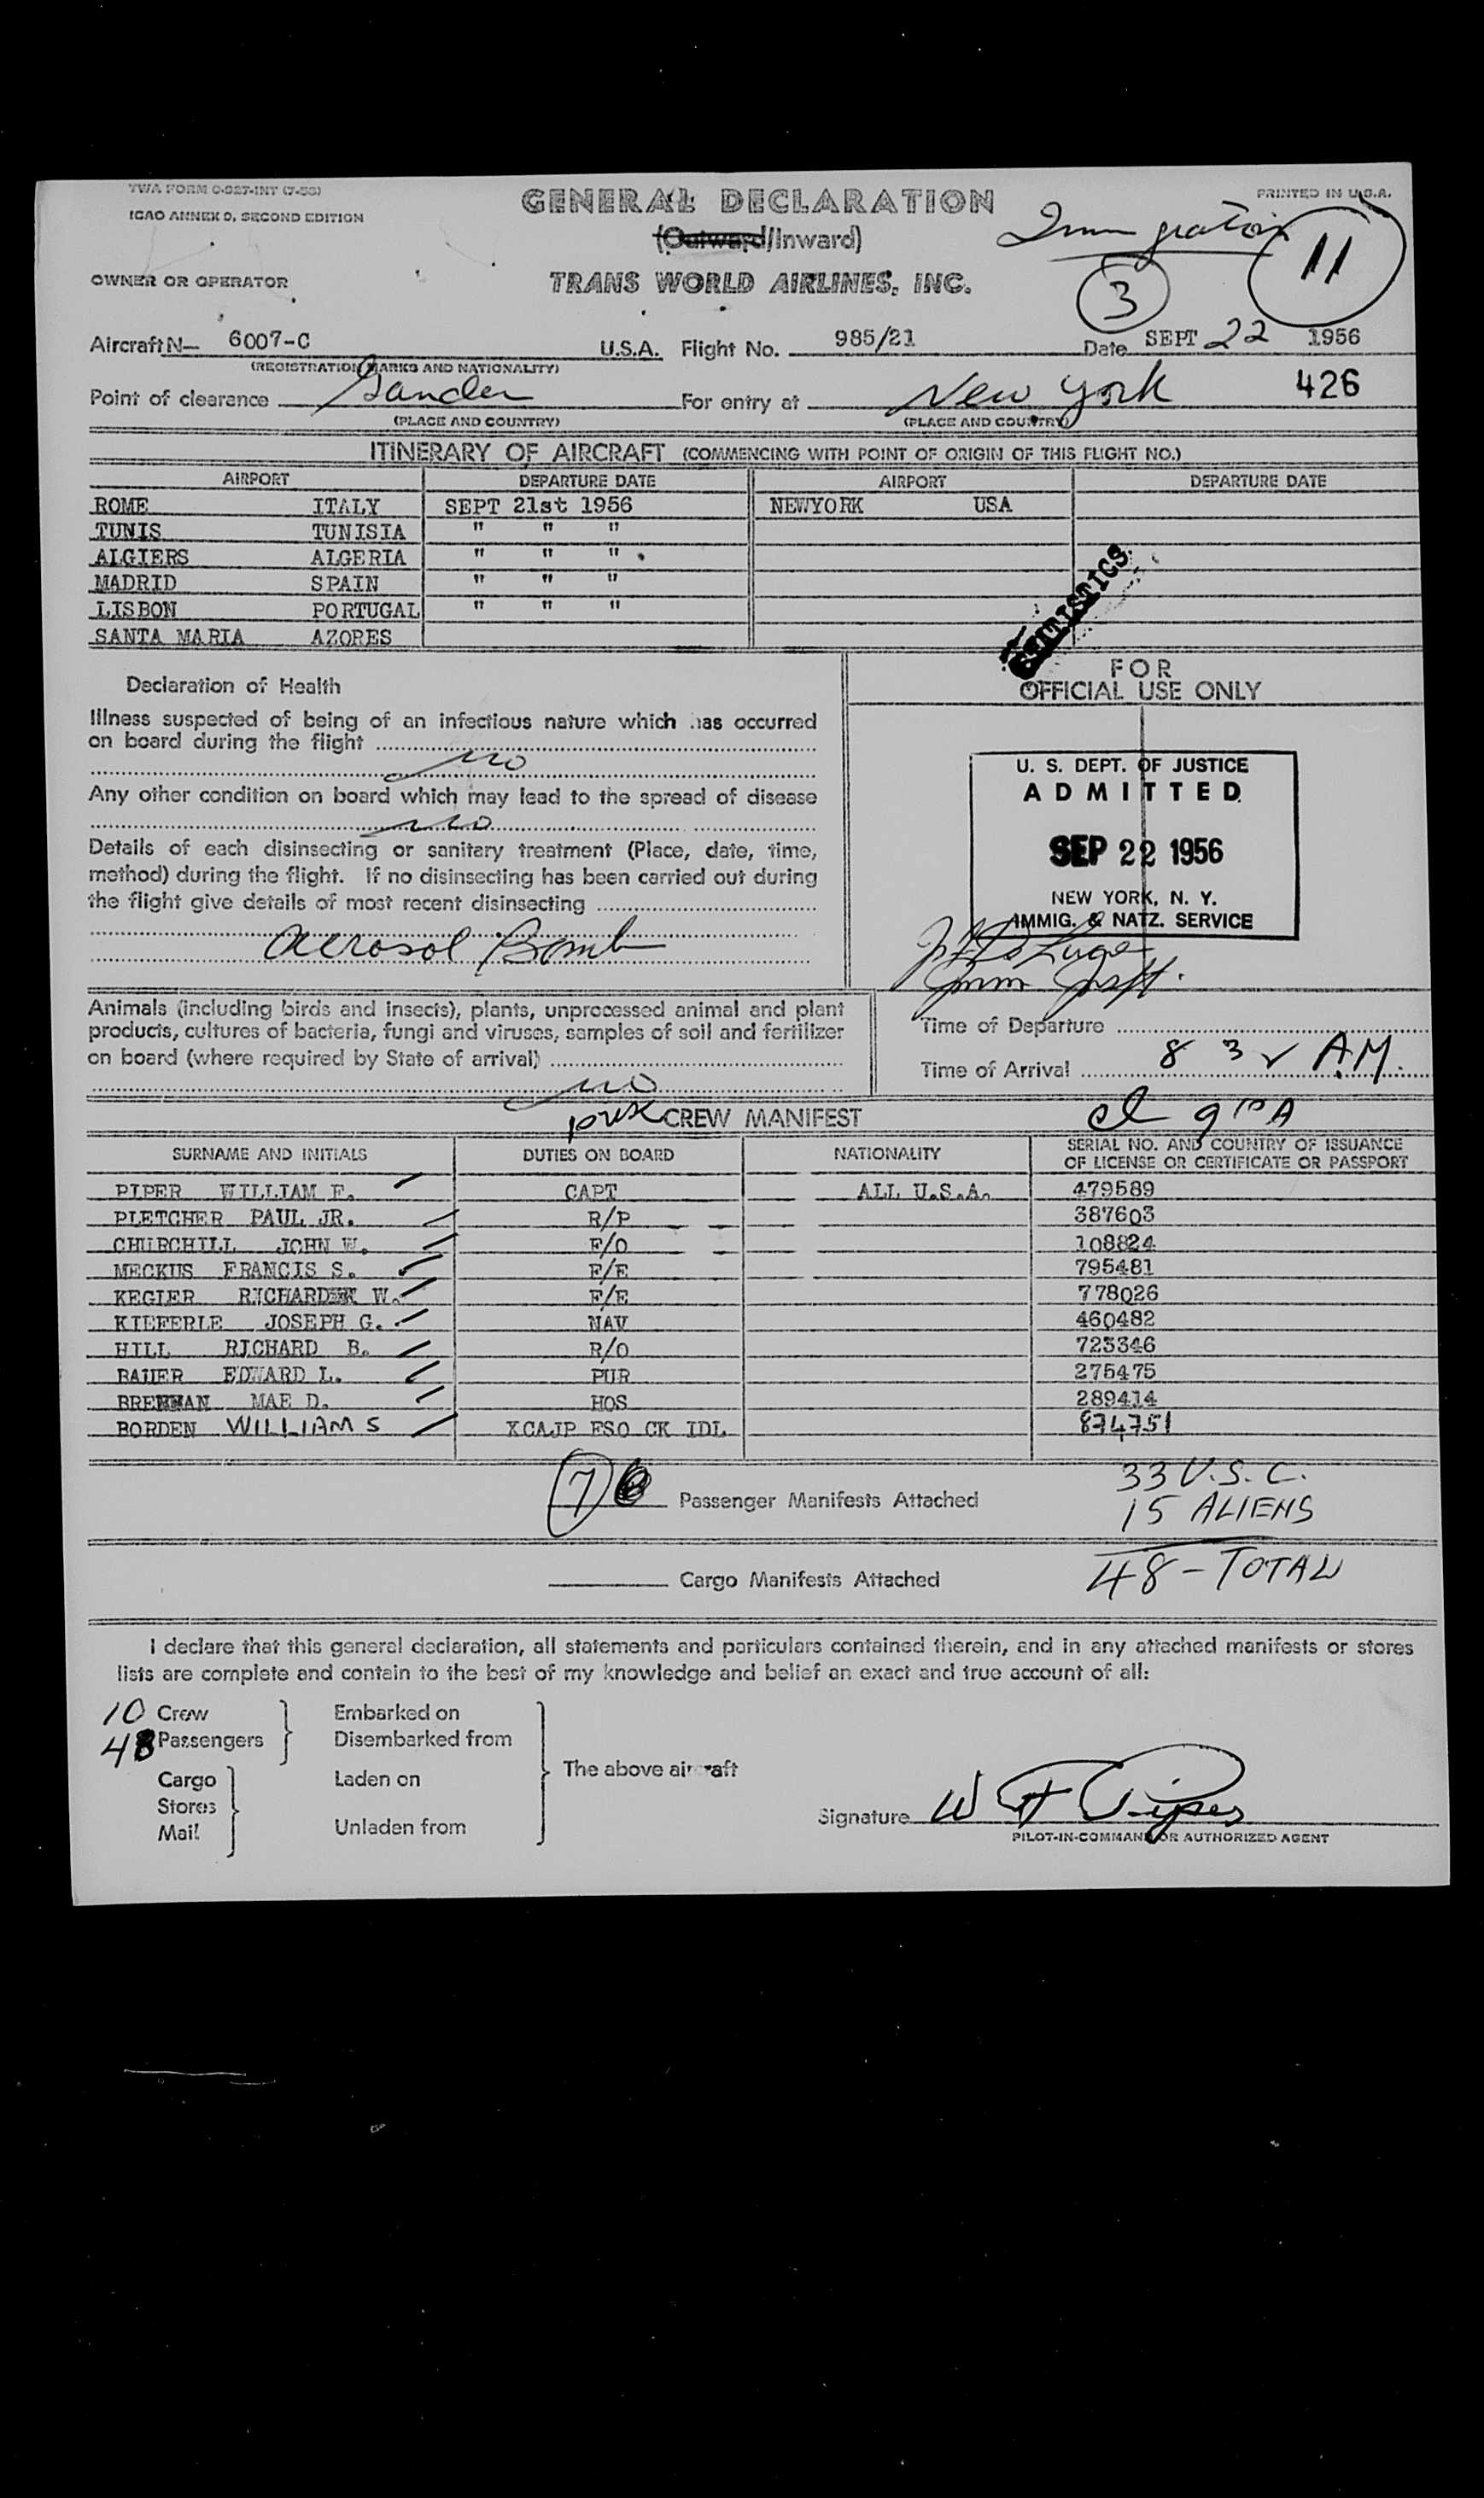 TWA FORM O-927-INT (7-53)
ICAO ANNEX 9, SECOND EDITION
GENERAL DECLARATION
(Outward/Inward)
PRINTED IN U.S.A.
Immigration
11
3
OWNER OR OPERATOR
TRANS WORLD AIRLINES, INC.
Aircraft N— 6007-C U.S.A. Flight No. 985/21 Date SEPT 22 1956
(REGISTRATION MARKS AND NATIONALITY)
Point of clearance Gander For entry at New York 426
(PLACE AND COUNTRY) (PLACE AND COUNTRY)
ITINERARY OF AIRCRAFT (COMMENCING WITH POINT OF ORIGIN OF THIS FLIGHT NO.)
AIRPORT DEPARTURE DATE AIRPORT DEPARTURE DATE
ROME ITALY SEPT 21st 1956 NEWYORK USA
TUNIS TUNISIA " " "
ALGIERS ALGERIA " " "
MADRID SPAIN " " "
LISBON PORTUGAL " " "
SANTA MARIA AZORES
STATISTICS.
Declaration of Health
Illness suspected of being of an infectious nature which has occurred
on board during the flight
no
Any other condition on board which may lead to the spread of disease
no
Details of each disinsecting or sanitary treatment (Place, date, time,
method) during the flight. If no disinsecting has been carried out during
the flight give details of most recent disinsecting
Aerosol Bomb
FOR
OFFICIAL USE ONLY
U. S. DEPT. OF JUSTICE
ADMITTED
SEP 22 1956
NEW YORK, N. Y.
IMMIG. & NATZ. SERVICE
Imm Insp.
Animals (including birds and insects), plants, unprocessed animal and plant
products, cultures of bacteria, fungi and viruses, samples of soil and fertilizer
on board (where required by State of arrival)
no
Time of Departure
Time of Arrival 8 32 A.M.
CREW MANIFEST
SURNAME AND INITIALS DUTIES ON BOARD NATIONALITY SERIAL NO. AND COUNTRY OF ISSUANCE
OF LICENSE OR CERTIFICATE OR PASSPORT
PIPER WILLIAM F. CAPT ALL U.S.A. 479589
PLETCHER PAUL JR. R/P 387603
CHURCHILL JOHN W. F/O 108824
MECKUS FRANCIS S. F/E 795481
KEGLER RICHARD W. F/E 778026
KIEFERLE JOSEPH G. NAV 460482
HILL RICHARD B. R/O 723346
BAUER EDWARD L. PUR 275475
BRENNAN MAE D. HOS 289414
BORDEN WILLIAM S XCAJP FSO CK IDL 874751
7 Passenger Manifests Attached
33 U.S.C.
15 ALIENS
48 - TOTAL
Cargo Manifests Attached
I declare that this general declaration, all statements and particulars contained therein, and in any attached manifests or stores
lists are complete and contain to the best of my knowledge and belief an exact and true account of all:
10 Crew Embarked on
48 Passengers Disembarked from
The above aircraft
Cargo Laden on
Stores
Mail Unladen from
Signature W F Piper
PILOT-IN-COMMAND OR AUTHORIZED AGENT